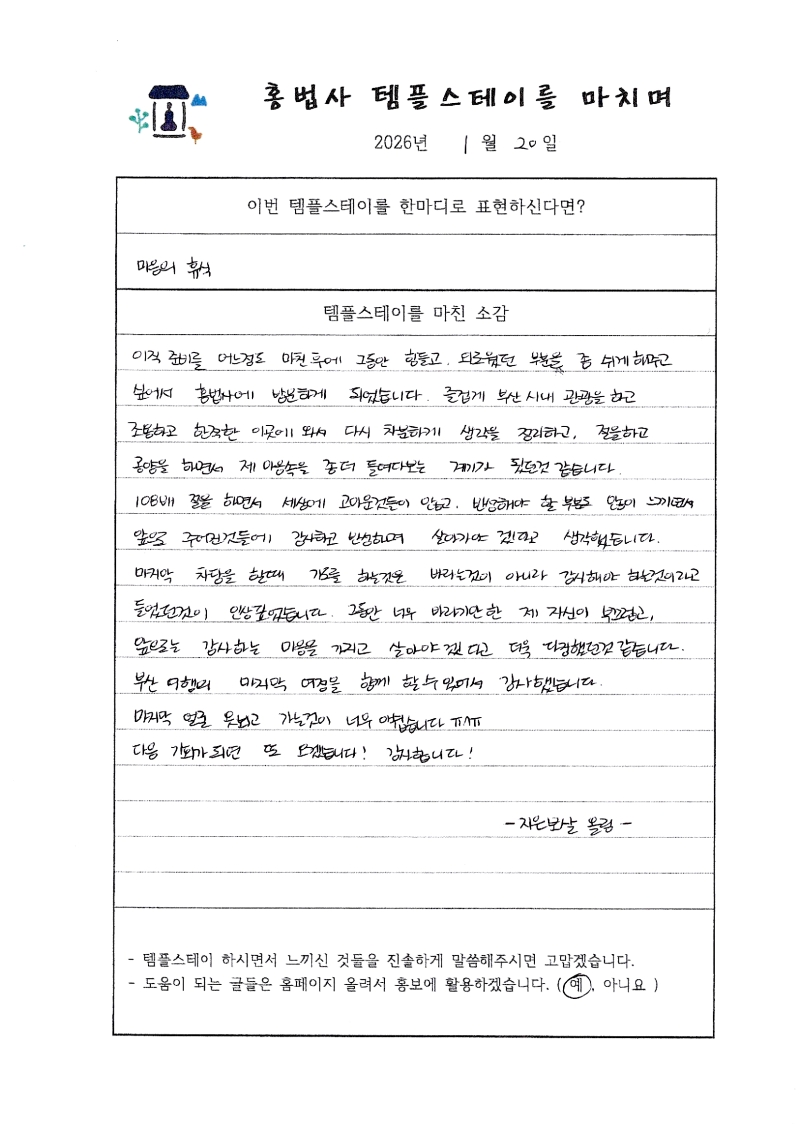 홍법사 템플스테이를 마치며
2026년 1월 20일
이번 템플스테이를 한마디로 표현하신다면?
마음의 휴식
템플스테이를 마친 소감
이직 준비를 어느정도 마친 후에 그동안 힘들고, 외로웠던 부분을 좀 쉬게 해주고
싶어서 홍법사에 방문하게 되었습니다. 즐겁게 부산 시내 관광을 하고
조용하고 한적한 이곳에 와서 다시 차분하게 생각을 정리하고, 절을하고
공양을 하면서 제 마음속을 좀 더 들여다보는 계기가 됐던것 같습니다.
108배 절을 하면서 세상에 고마운것들이 많고, 반성해야 할 부분도 많음이 느끼면서
앞으로 주어진것들에 감사하고 반성하며 살아가야 겠다고 생각했습니다.
마지막 차담을 할때 기도를 하는것은 바라는것이 아니라 감사해야 하는것이라고
들었던것이 인상깊었습니다. 그동안 너무 바라기만한 제 자신이 부끄럽고,
앞으로는 감사하는 마음을 가지고 살아야 겠다고 더욱 다짐했던것 같습니다.
부산 여행의 마지막 여정을 함께 할수 있어서 감사했습니다.
마지막 얼굴 못보고 가는것이 너무 아쉽습니다 ㅠㅅㅠ
다음 기회가 되면 또 오겠습니다! 감사합니다!
- 지은보살 올림 -
- 템플스테이 하시면서 느끼신 것들을 진솔하게 말씀해주시면 고맙겠습니다.
- 도움이 되는 글들은 홈페이지 올려서 홍보에 활용하겠습니다. ( 예, 아니요 )